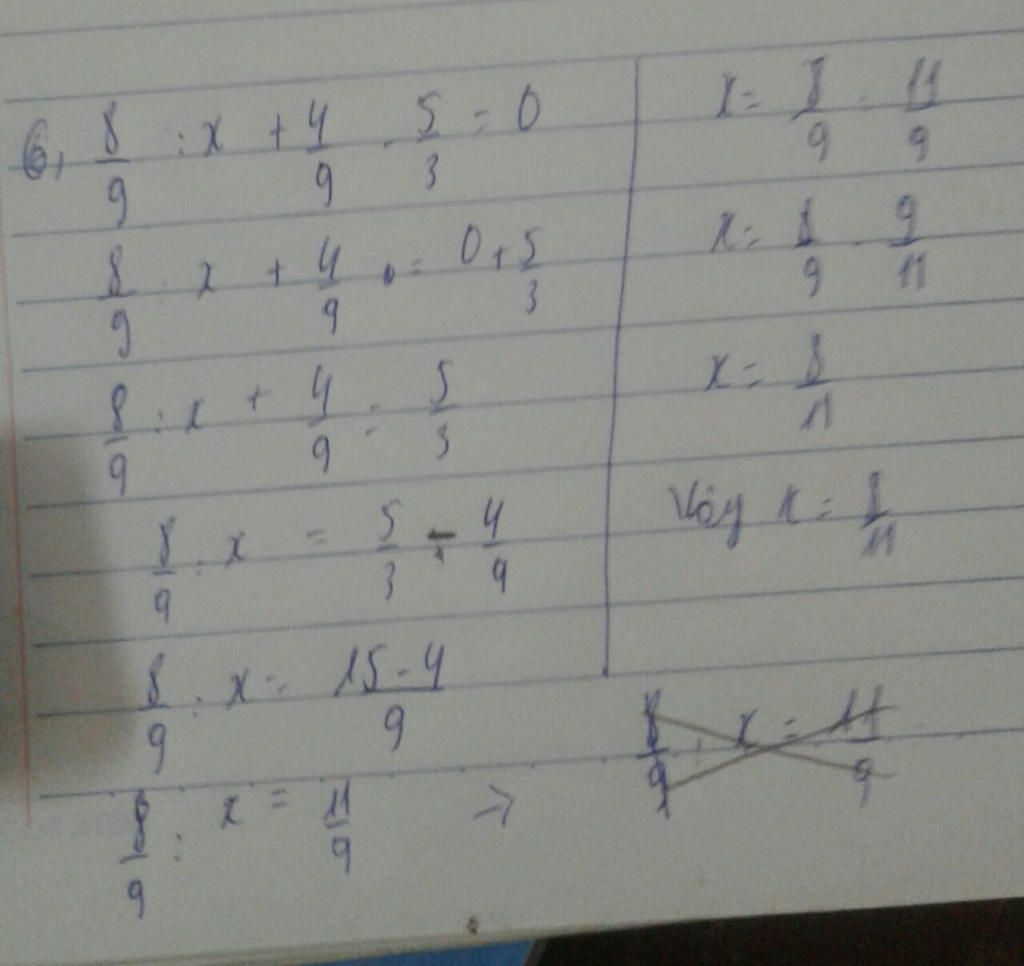 6, 8/9 : x + 4/9 - 5/3 = 0
8/9 x + 4/9 = 0 + 5/3
8/9 : x + 4/9 = 5/3
8/9 : x = 5/3 - 4/9
8/9 : x = 15-4/9
8/9 : x = 11/9 →
x = 8/9 : 11/9
x = 8/9 . 9/11
x = 8/11
Vậy x = 8/11
8/9 : x = 11/9